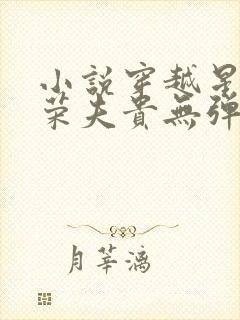 小說穿越星
荣夫貴無弹
月莘漓